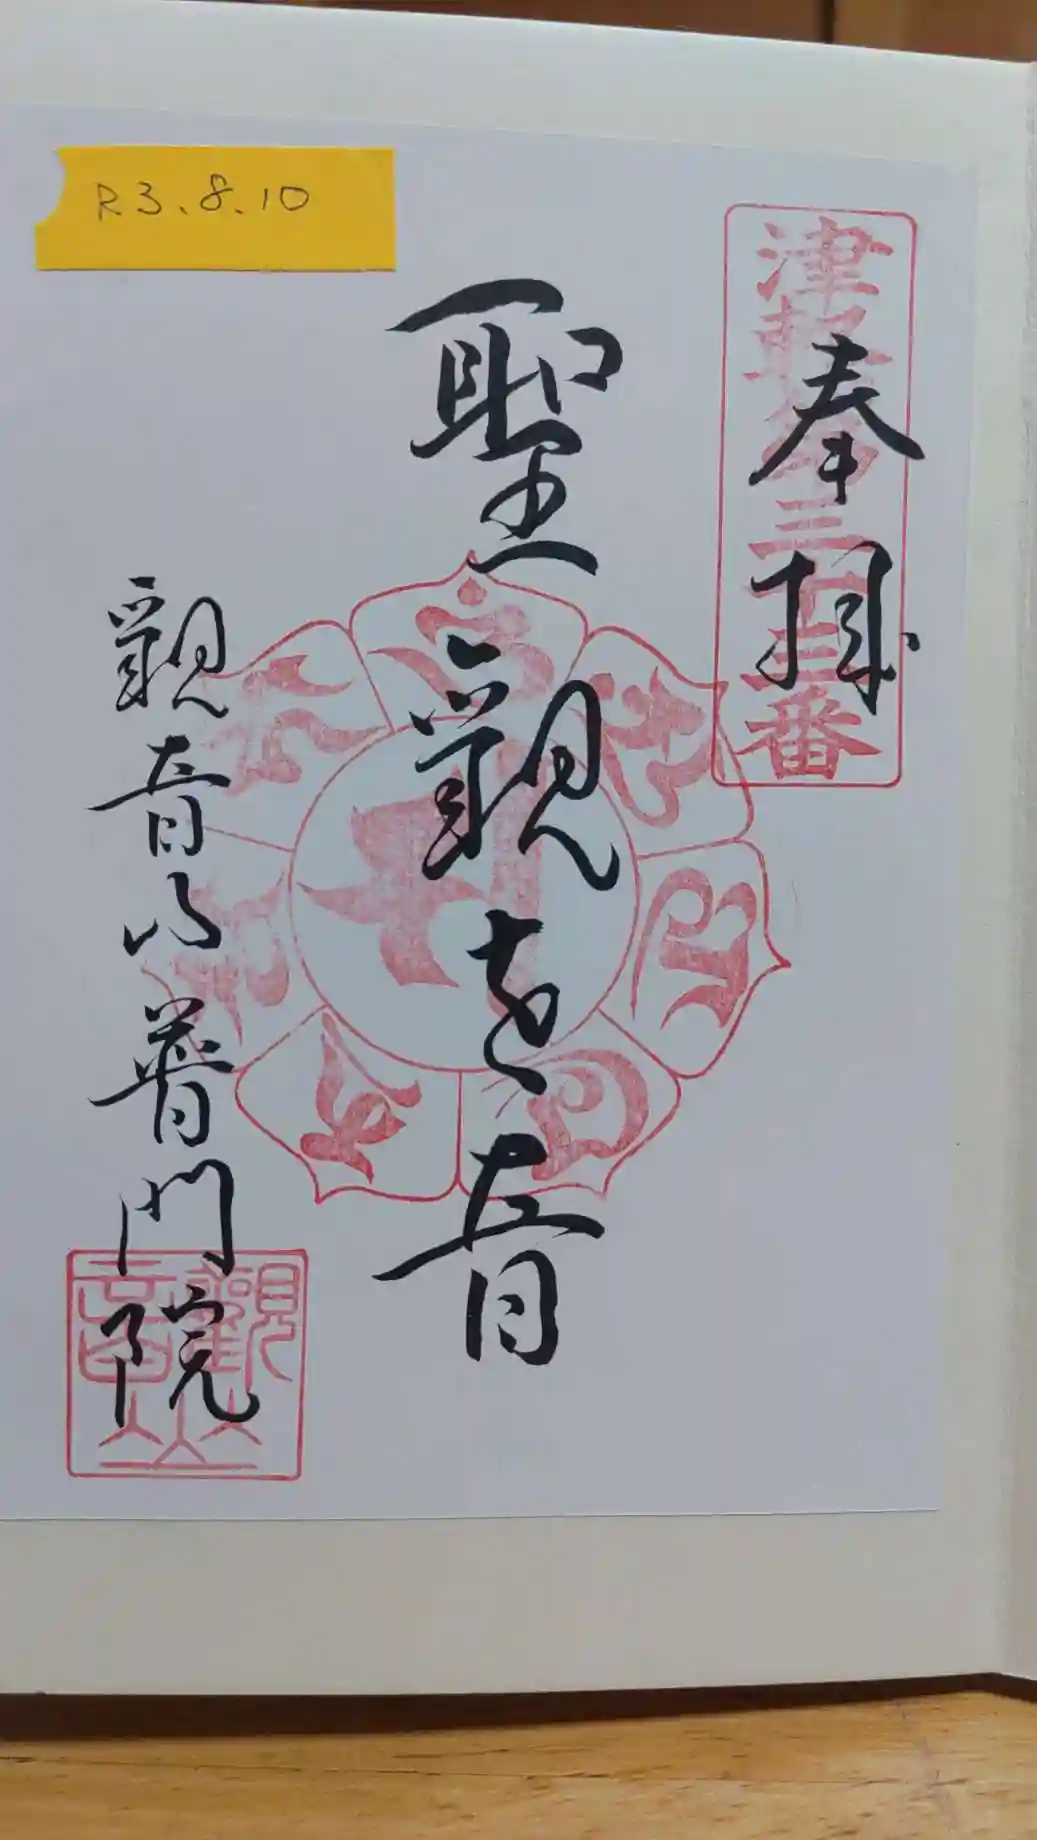 R3.8.10
津軽第三十三番
奉拝
聖観世音
観音山普門院
観音山